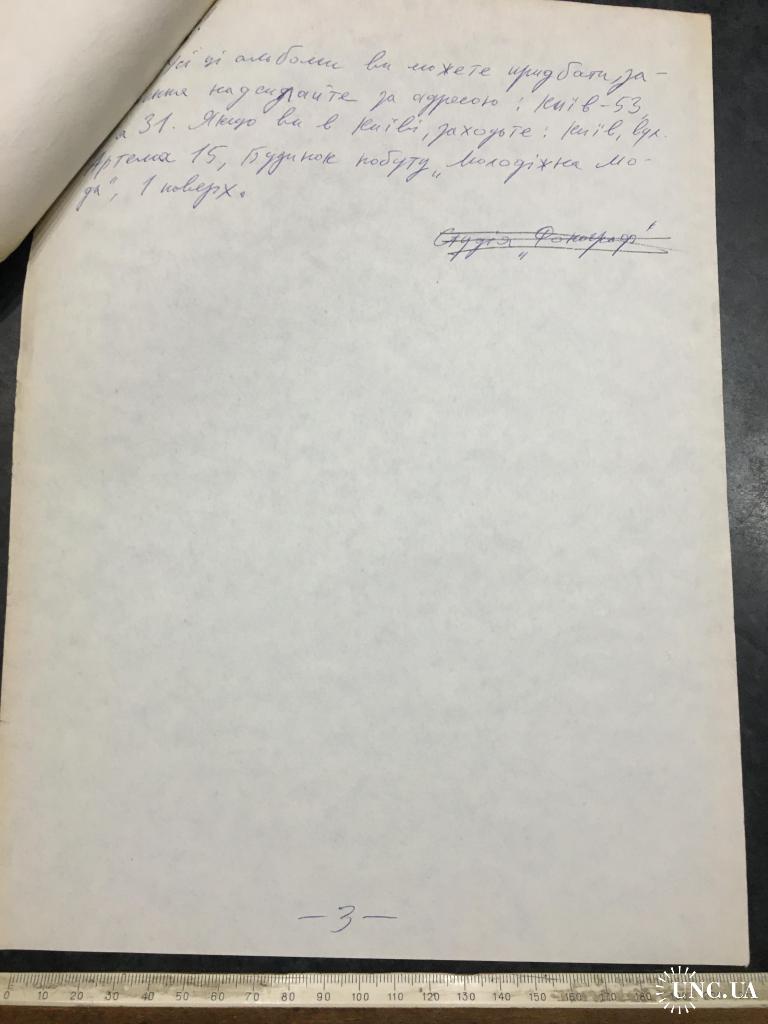 ці альбоми ви можете придбати, за-
ння надсилайте за адресою: Київ-53,
31. Якщо ви в Києві, заходьте: Київ, вул.
Артема 15, Будинок побуту „Молодіжна мо-
да", 1 поверх.
Студія „Фонограф"
—3—
0 10 20 30 40 50 60 70 80 90 100 110 120 130 140 150 160 170 180
UNC.UA